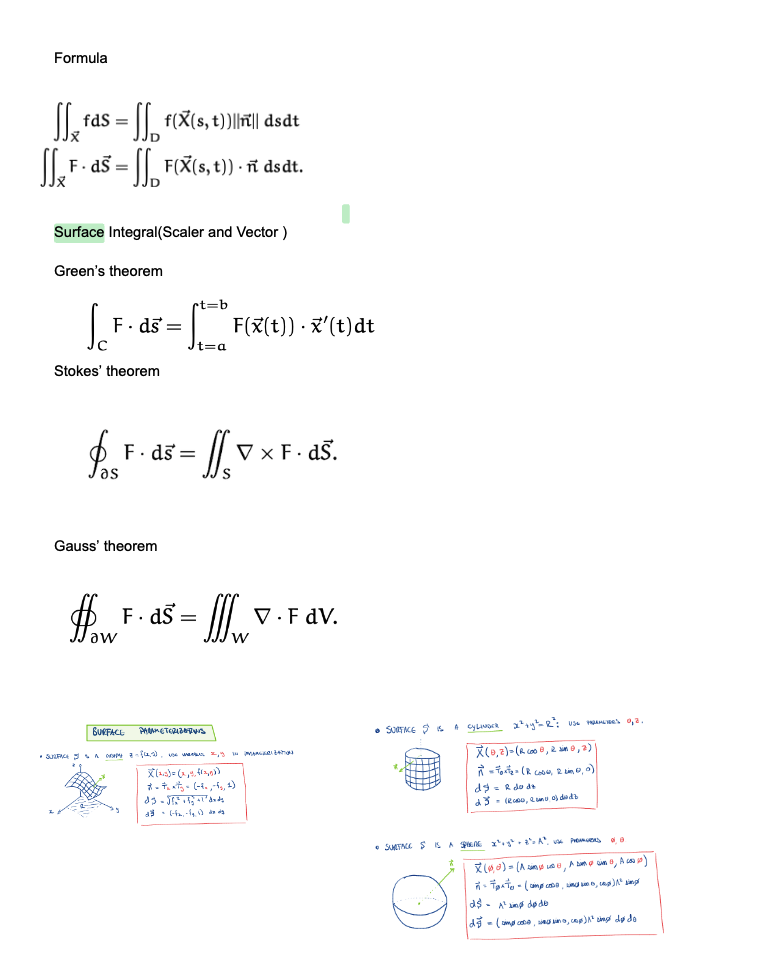 Formula
∬_X⃗ fdS = ∬_D f(X⃗(s,t))||n⃗|| dsdt
∬_X⃗ F · dS⃗ = ∬_D F(X⃗(s,t)) · n⃗ dsdt.
Surface Integral(Scaler and Vector )
Green's theorem
∫_C F · ds⃗ = ∫_{t=a}^{t=b} F(x⃗(t)) · x⃗′(t)dt
Stokes' theorem
∮_∂S F · ds⃗ = ∬_S ∇ × F · dS⃗.
Gauss' theorem
∯_∂W F · dS⃗ = ∭_W ∇ · F dV.
SURFACE PARAMETERIZATIONS
• SURFACE S IS A GRAPH z = f(x,y), USE VARIABLES x, y IN PARAMETERIZATION
X⃗(x,y)=(x,y,f(x,y))
n⃗ = T⃗x×T⃗y = (-fx,-fy,1)
dS = √(fx²+fy²+1) dxdy
dS⃗ = (-fx,-fy,1) dxdy
• SURFACE S IS A CYLINDER x²+y²=R²: USE PARAMETERS θ,z.
X⃗(θ,z)=(R cos θ, R sin θ, z)
n⃗ = T⃗θ×T⃗z=(R cosθ, R sin θ, 0)
dS = R dθ dz
dS⃗ = (R cosθ, R sin θ, 0) dθ dz
• SURFACE S IS A SPHERE x²+y²+z²=A², USE PARAMETERS φ, θ
X⃗(φ,θ)=(A sin φ cos θ, A sin φ sin θ, A cos φ)
n⃗ = T⃗φ×T⃗θ = (sinφ cosθ, sinφ sin θ, cosφ)A² sinφ
dS = A² sinφ dφdθ
dS⃗ = (sinφ cosθ, sinφ sinθ, cosφ)A² sinφ dφ dθ